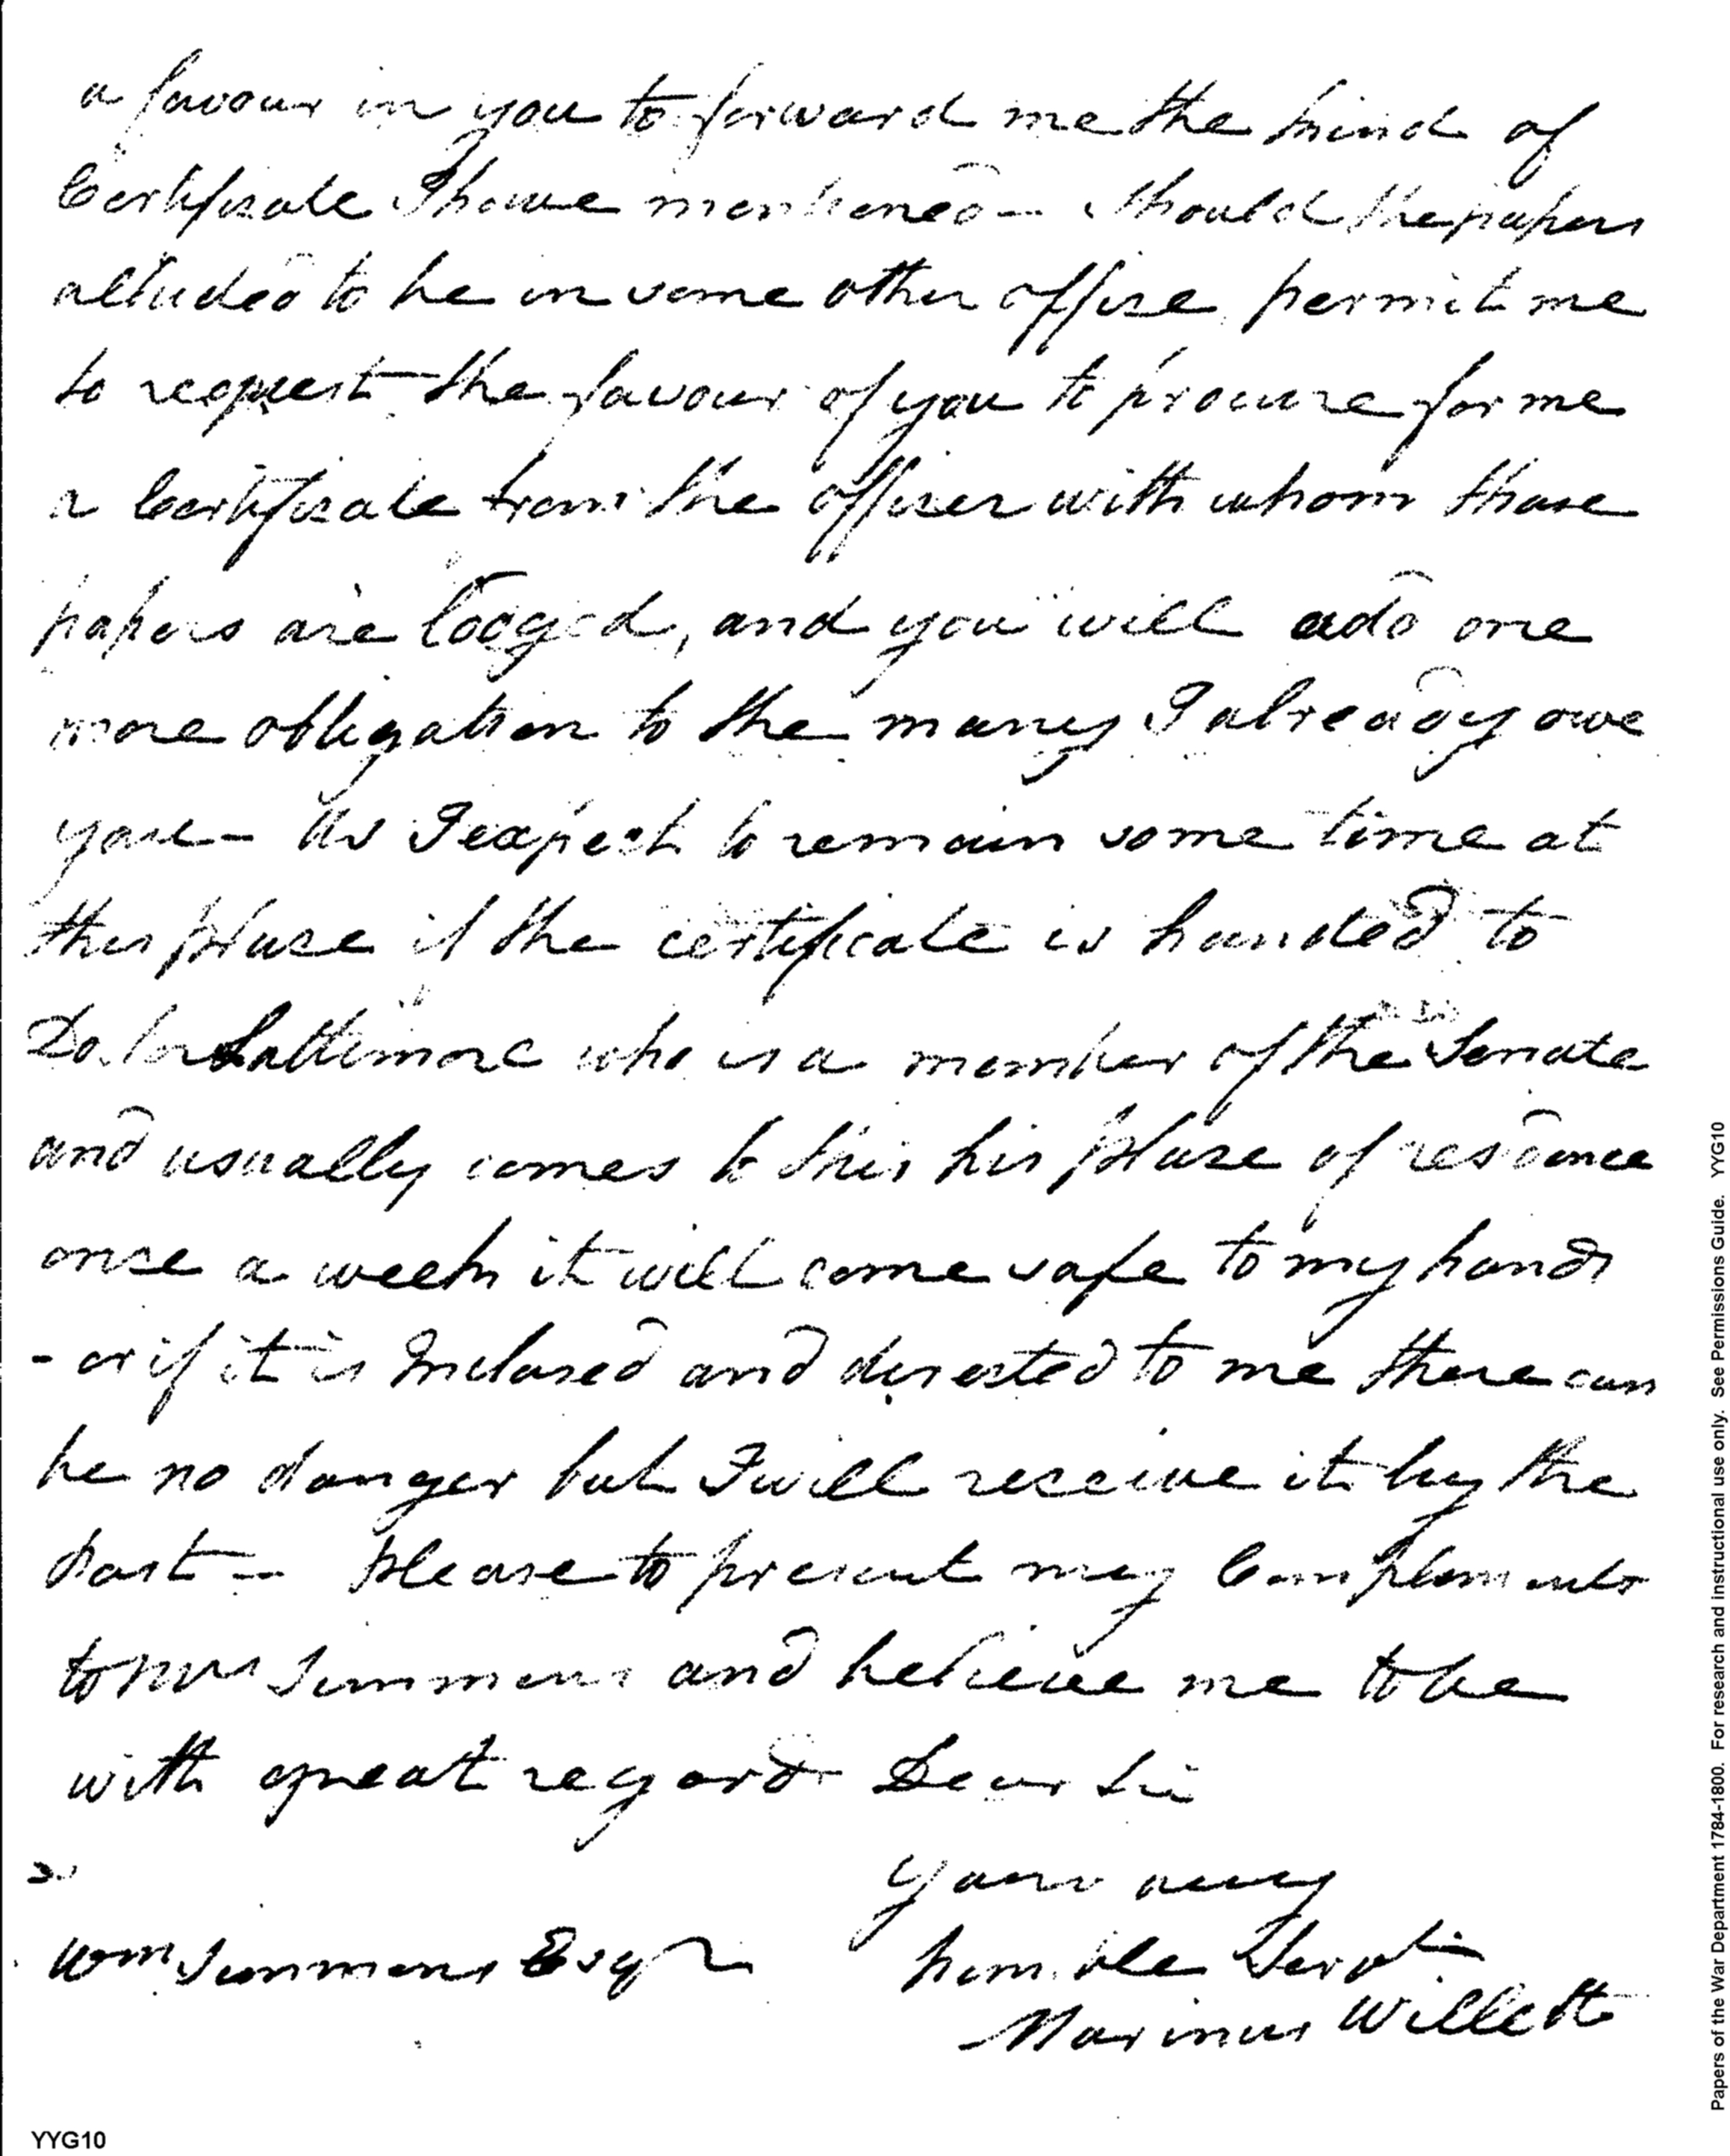 a favour in you to forward me the kind of
Certificate I have mentioned – should the papers
alluded to be in some other office permit me
to request the favour of you to procure for me
a Certificate from the officer with whom those
papers are lodged, and you will add one
more obligation to the many I already owe
you – As I expect to remain some time at
this place if the certificate is handed to
Doctor Lattimore who is a member of the Senate
and usually comes to this his place of resdence
once a week it will come safe to my hands
- or if it is Inclosed and directed to me there can
be no danger but I will receive it by the
post – please to present my Compliments
to Mrs Simmons and believe me to be
with great regard Dear Sir
Yours very
humble Servt
Wm Simmons Esqr
Marinus Willett
YYG10
Papers of the War Department 1784-1800. For research and instructional use only. See Permissions Guide. YYG10